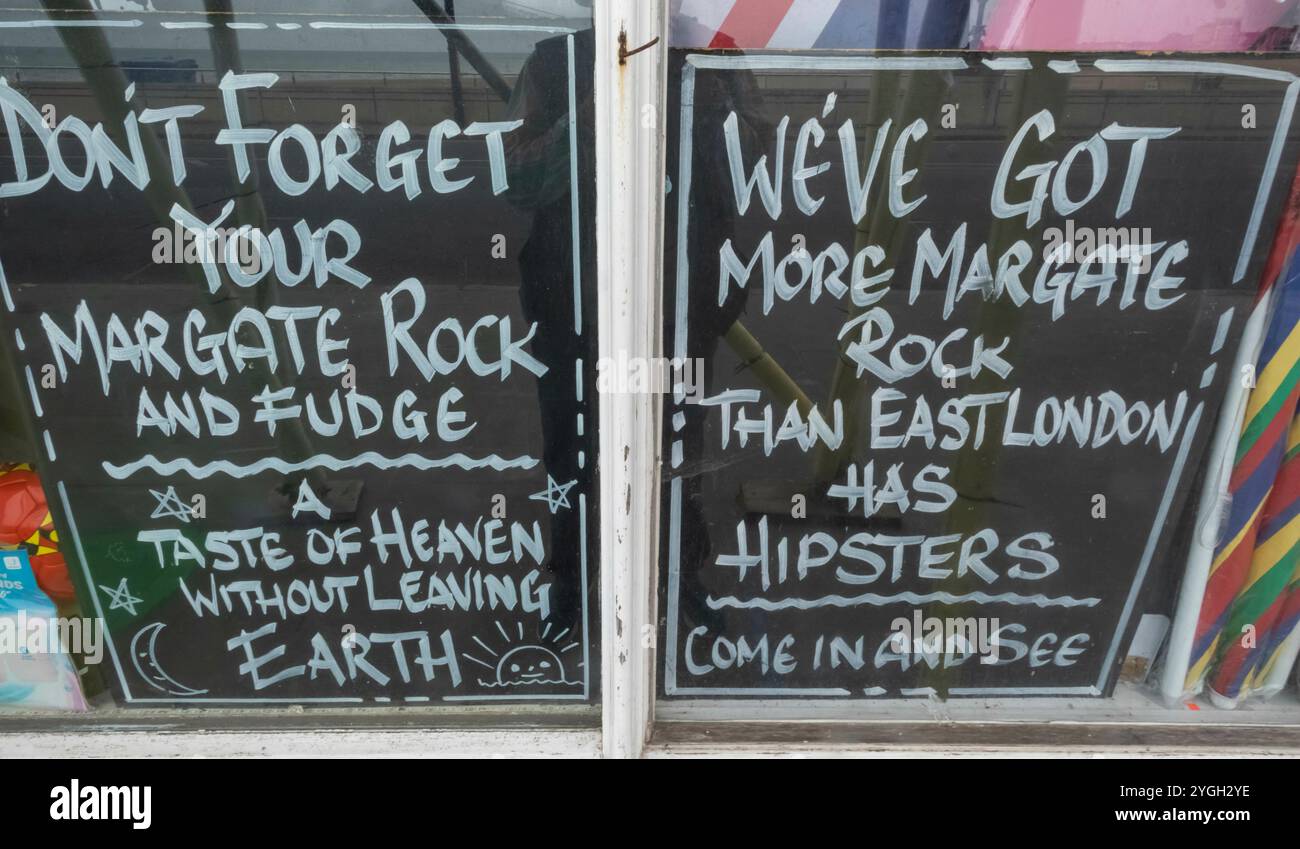 DON'T FORGET
YOUR
MARGATE ROCK
AND FUDGE
A
TASTE OF HEAVEN
WITHOUT LEAVING
EARTH
WE'VE GOT
MORE MARGATE
ROCK
THAN EAST LONDON
HAS
HIPSTERS
COME IN AND SEE
alamy
Image ID: 2YGH2YE
www.alamy.com